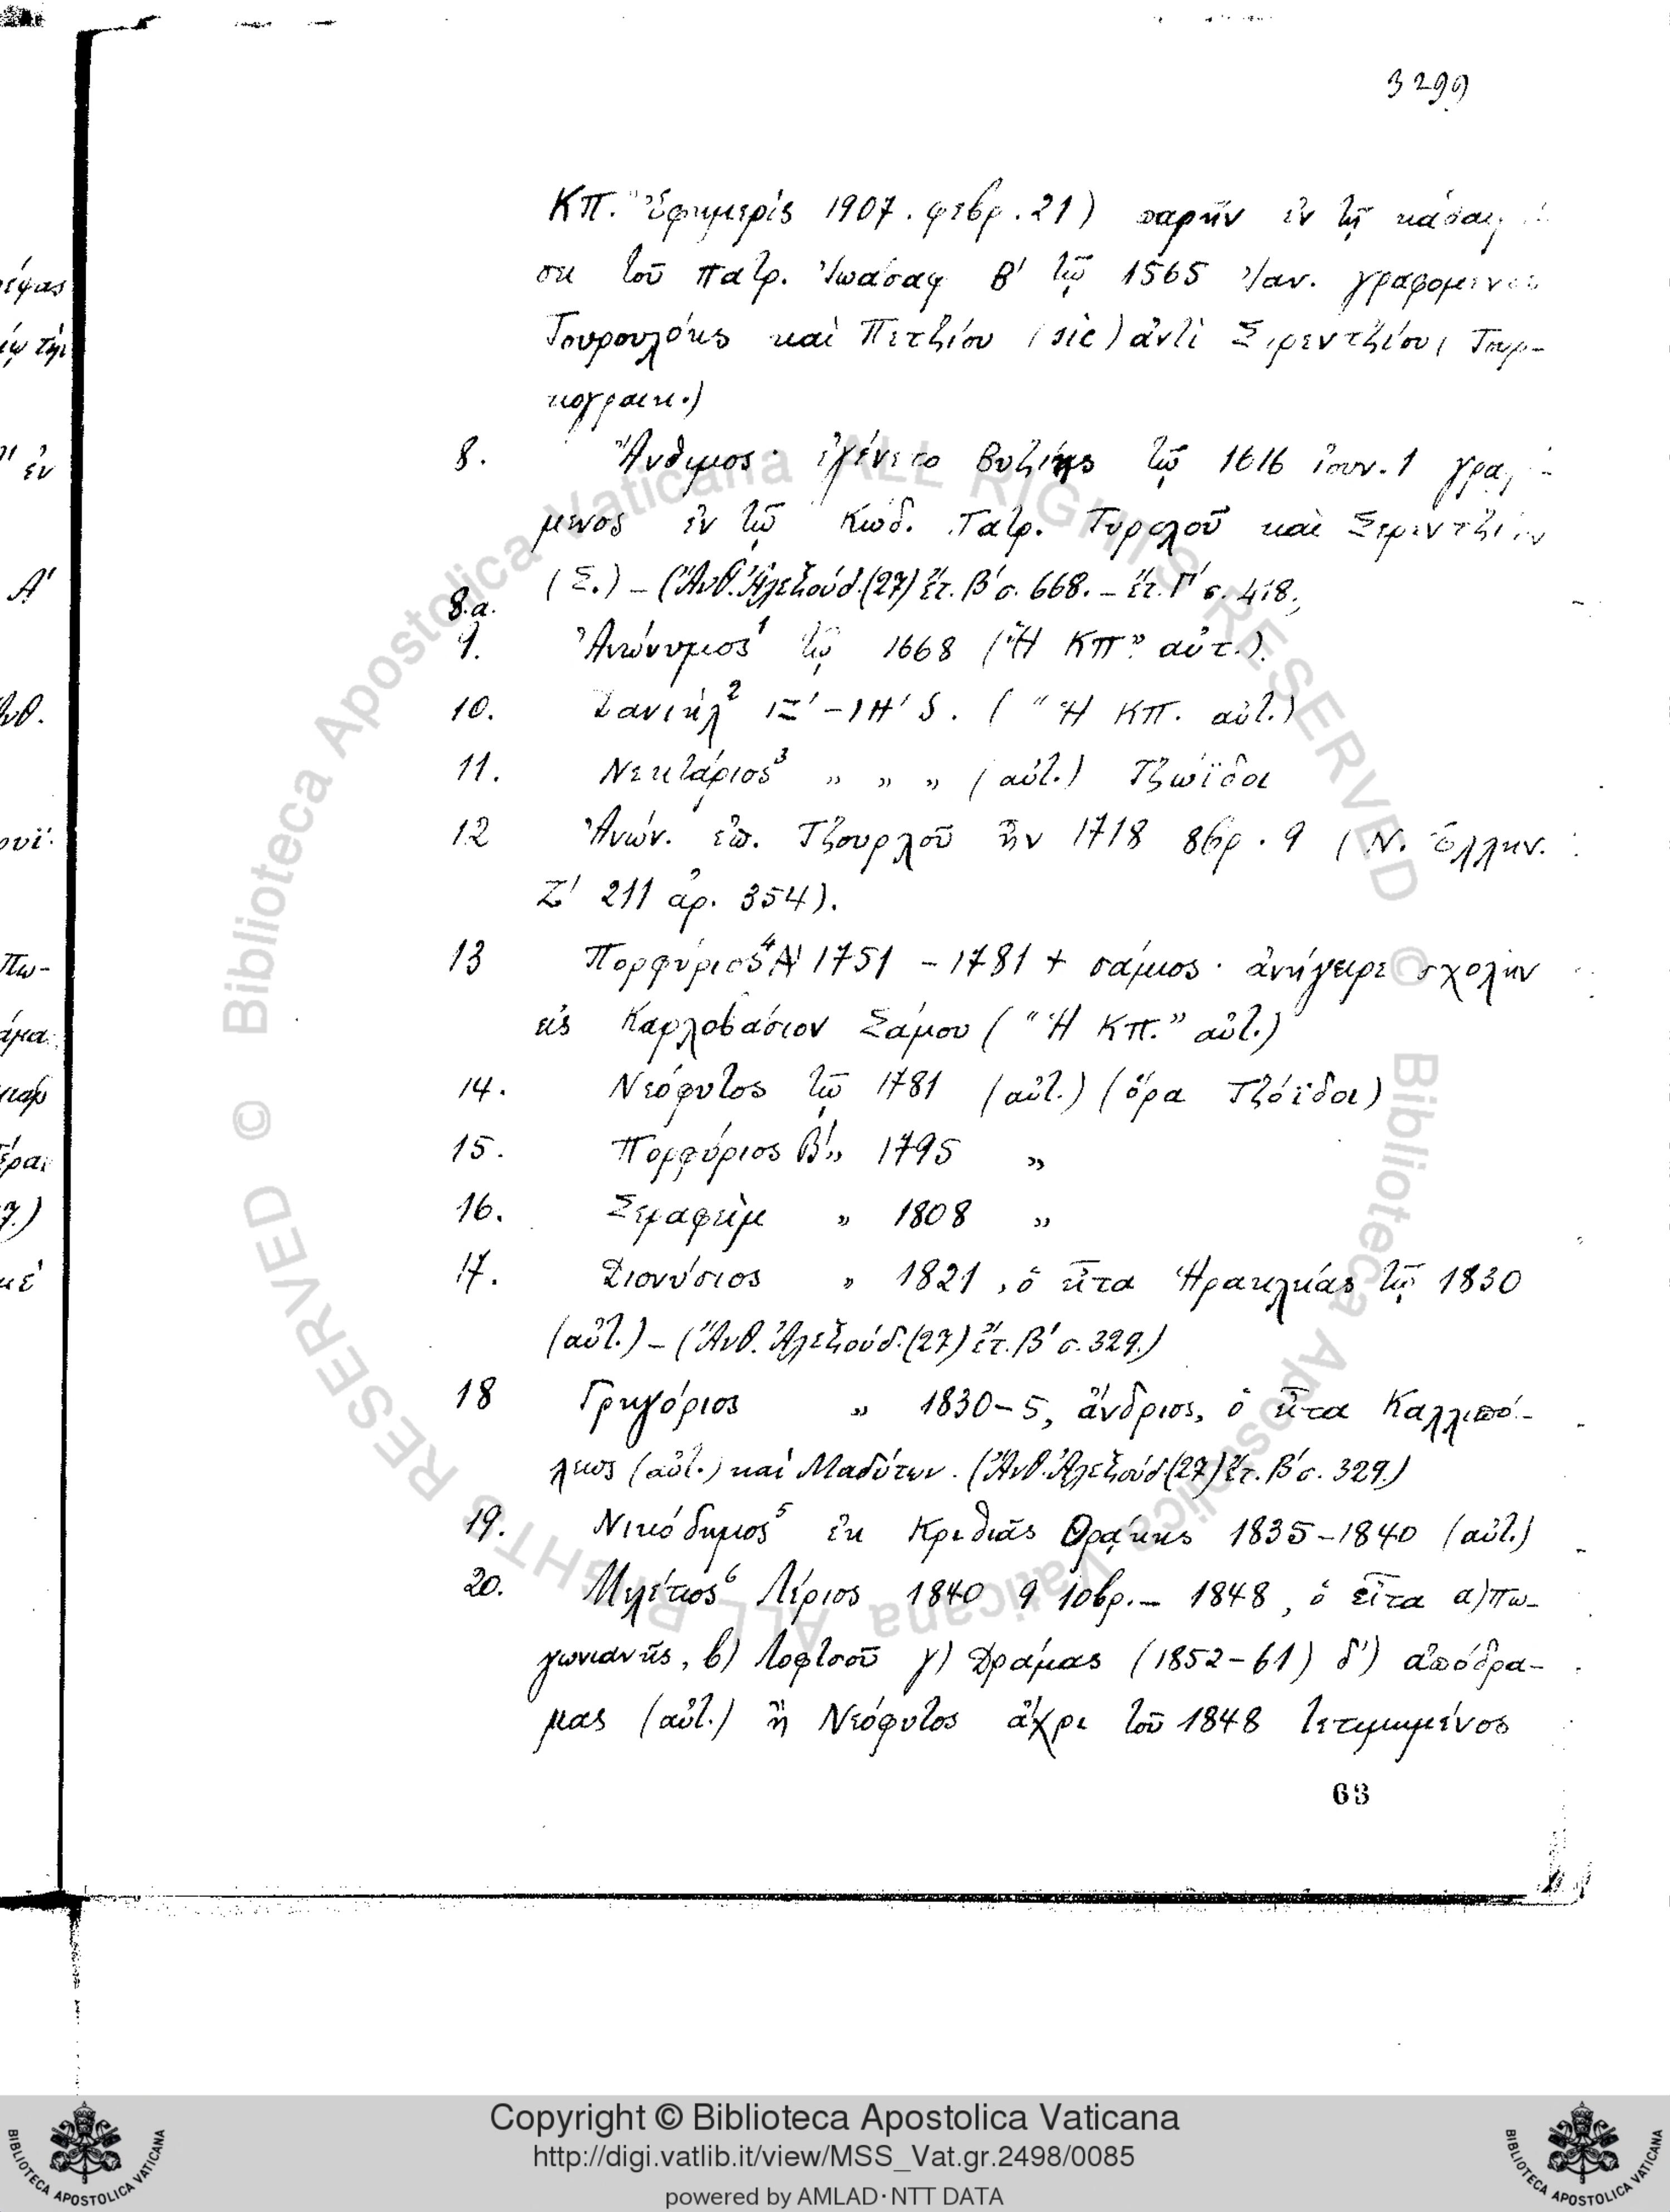 3299
ΚΠ." ἐφημερίς 1907. φεβρ. 21) παρῆν ἐν τῇ
σει τοῦ πατρ. Ἰωάσαφ Β' τῷ 1565 Ἰαν. γραφομενου
Τουρουλόης καὶ Πετζίου (sic) ἀντὶ Σερεντζίου, Τουρ-
κογραικ.)
8. Ἄνθιμος· ἐγένετο Βυζίης τῷ 1616 ἰουν. 1
μενος ἐν τῷ Κώδ. Πατρ. Τυρολοῦ καὶ Σερεντζίου
(Σ.) – (Ἀνθ. Ἀλεξούδ. (27) ἔτ. Β' σ. 668. – ἔτ. Γ' σ. 418.
8.a.
9. Ἀνώνυμος¹ τῷ 1668 ("Ἡ ΚΠ" αὐτ.).
10. Δανιὴλ² ΙΖ' – ΙΗ' ς. ("Ἡ ΚΠ. αὐτ.)
11. Νεκτάριος³ „ „ „ (αὐτ.) Τζωΐδοι
12 Ἀνών. ἐπ. Τζουρλοῦ ἦν 1718 8βρ. 9 (Ν. Ἑλλην.
Ζ' 211 ἀρ. 354).
13 Πορφύριος⁴ Α' 1751 – 1781 + σάμιος· ἀνήγειρε σχολὴν
εἰς Καρλοβάσιον Σάμου ("Ἡ ΚΠ." αὐτ.)
14. Νεόφυτος τῷ 1781 (αὐτ.) (ὅρα Τζόϊδοι)
15. Πορφύριος Β' „ 1795 „
16. Σεραφεὶμ „ 1808 „
17. Διονύσιος „ 1821, ὁ εἶτα Ἡρακλείας τῷ 1830
(αὐτ.) – (Ἀνθ. Ἀλεξούδ. (27) ἔτ. Β' σ. 329.)
18 Γρηγόριος „ 1830–5, ἄνδριος, ὁ εἶτα Καλλιπό-
λεως (αὐτ.) καὶ Μαδύτων. (Ἀνθ. Ἀλεξούδ. (27) ἔτ. Β' σ. 329.)
19. Νικόδημος⁵ ἐκ Κριθιᾶς Θρᾴκης 1835–1840 (αὐτ.)
20. Μελέτιος⁶ Λέριος 1840 9 10βρ. – 1848, ὁ εἶτα α) Πω-
γωνιανῆς, β) Λοφτσοῦ γ) Δράμας (1852–61) δ') ἀπόδρα-
μας (αὐτ.) ἢ Νεόφυτος ἄχρι τοῦ 1848 τετιμημένος
63
© Biblioteca Apostolica Vaticana ALL RIGHTS RESERVED © Biblioteca Apostolica Vaticana ALL RIGHTS RESERVED
Copyright © Biblioteca Apostolica Vaticana
http://digi.vatlib.it/view/MSS_Vat.gr.2498/0085
powered by AMLAD·NTT DATA
BIBLIOTECA APOSTOLICA VATICANA
BIBLIOTECA APOSTOLICA VATICANA